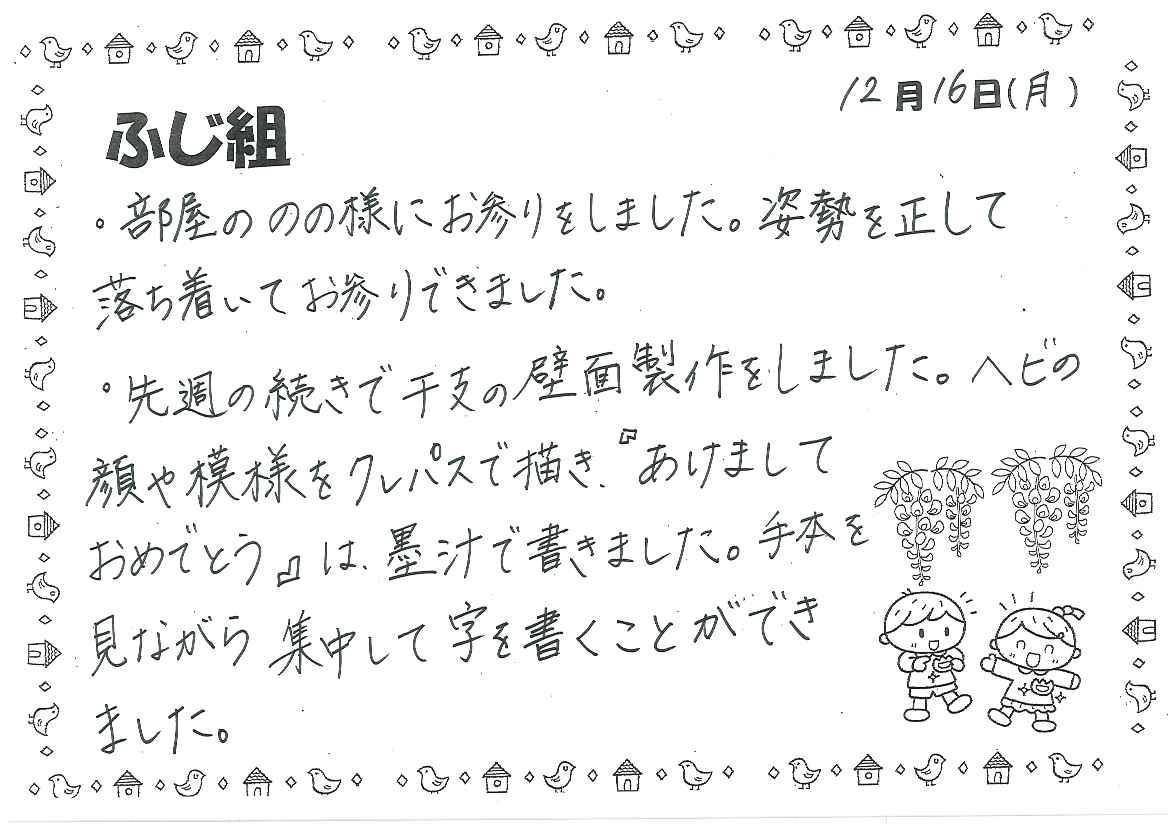 12月16日(月)
ふじ組
。部屋の のの様にお参りをしました。姿勢を正して
落ち着いてお参りできました。
。先週の続きで干支の壁面製作をしました。ヘビの
顔や模様をクレパスで描き、『あけまして
おめでとう』は、墨汁で書きました。手本を
見ながら 集中して字を書くことができ
ました。